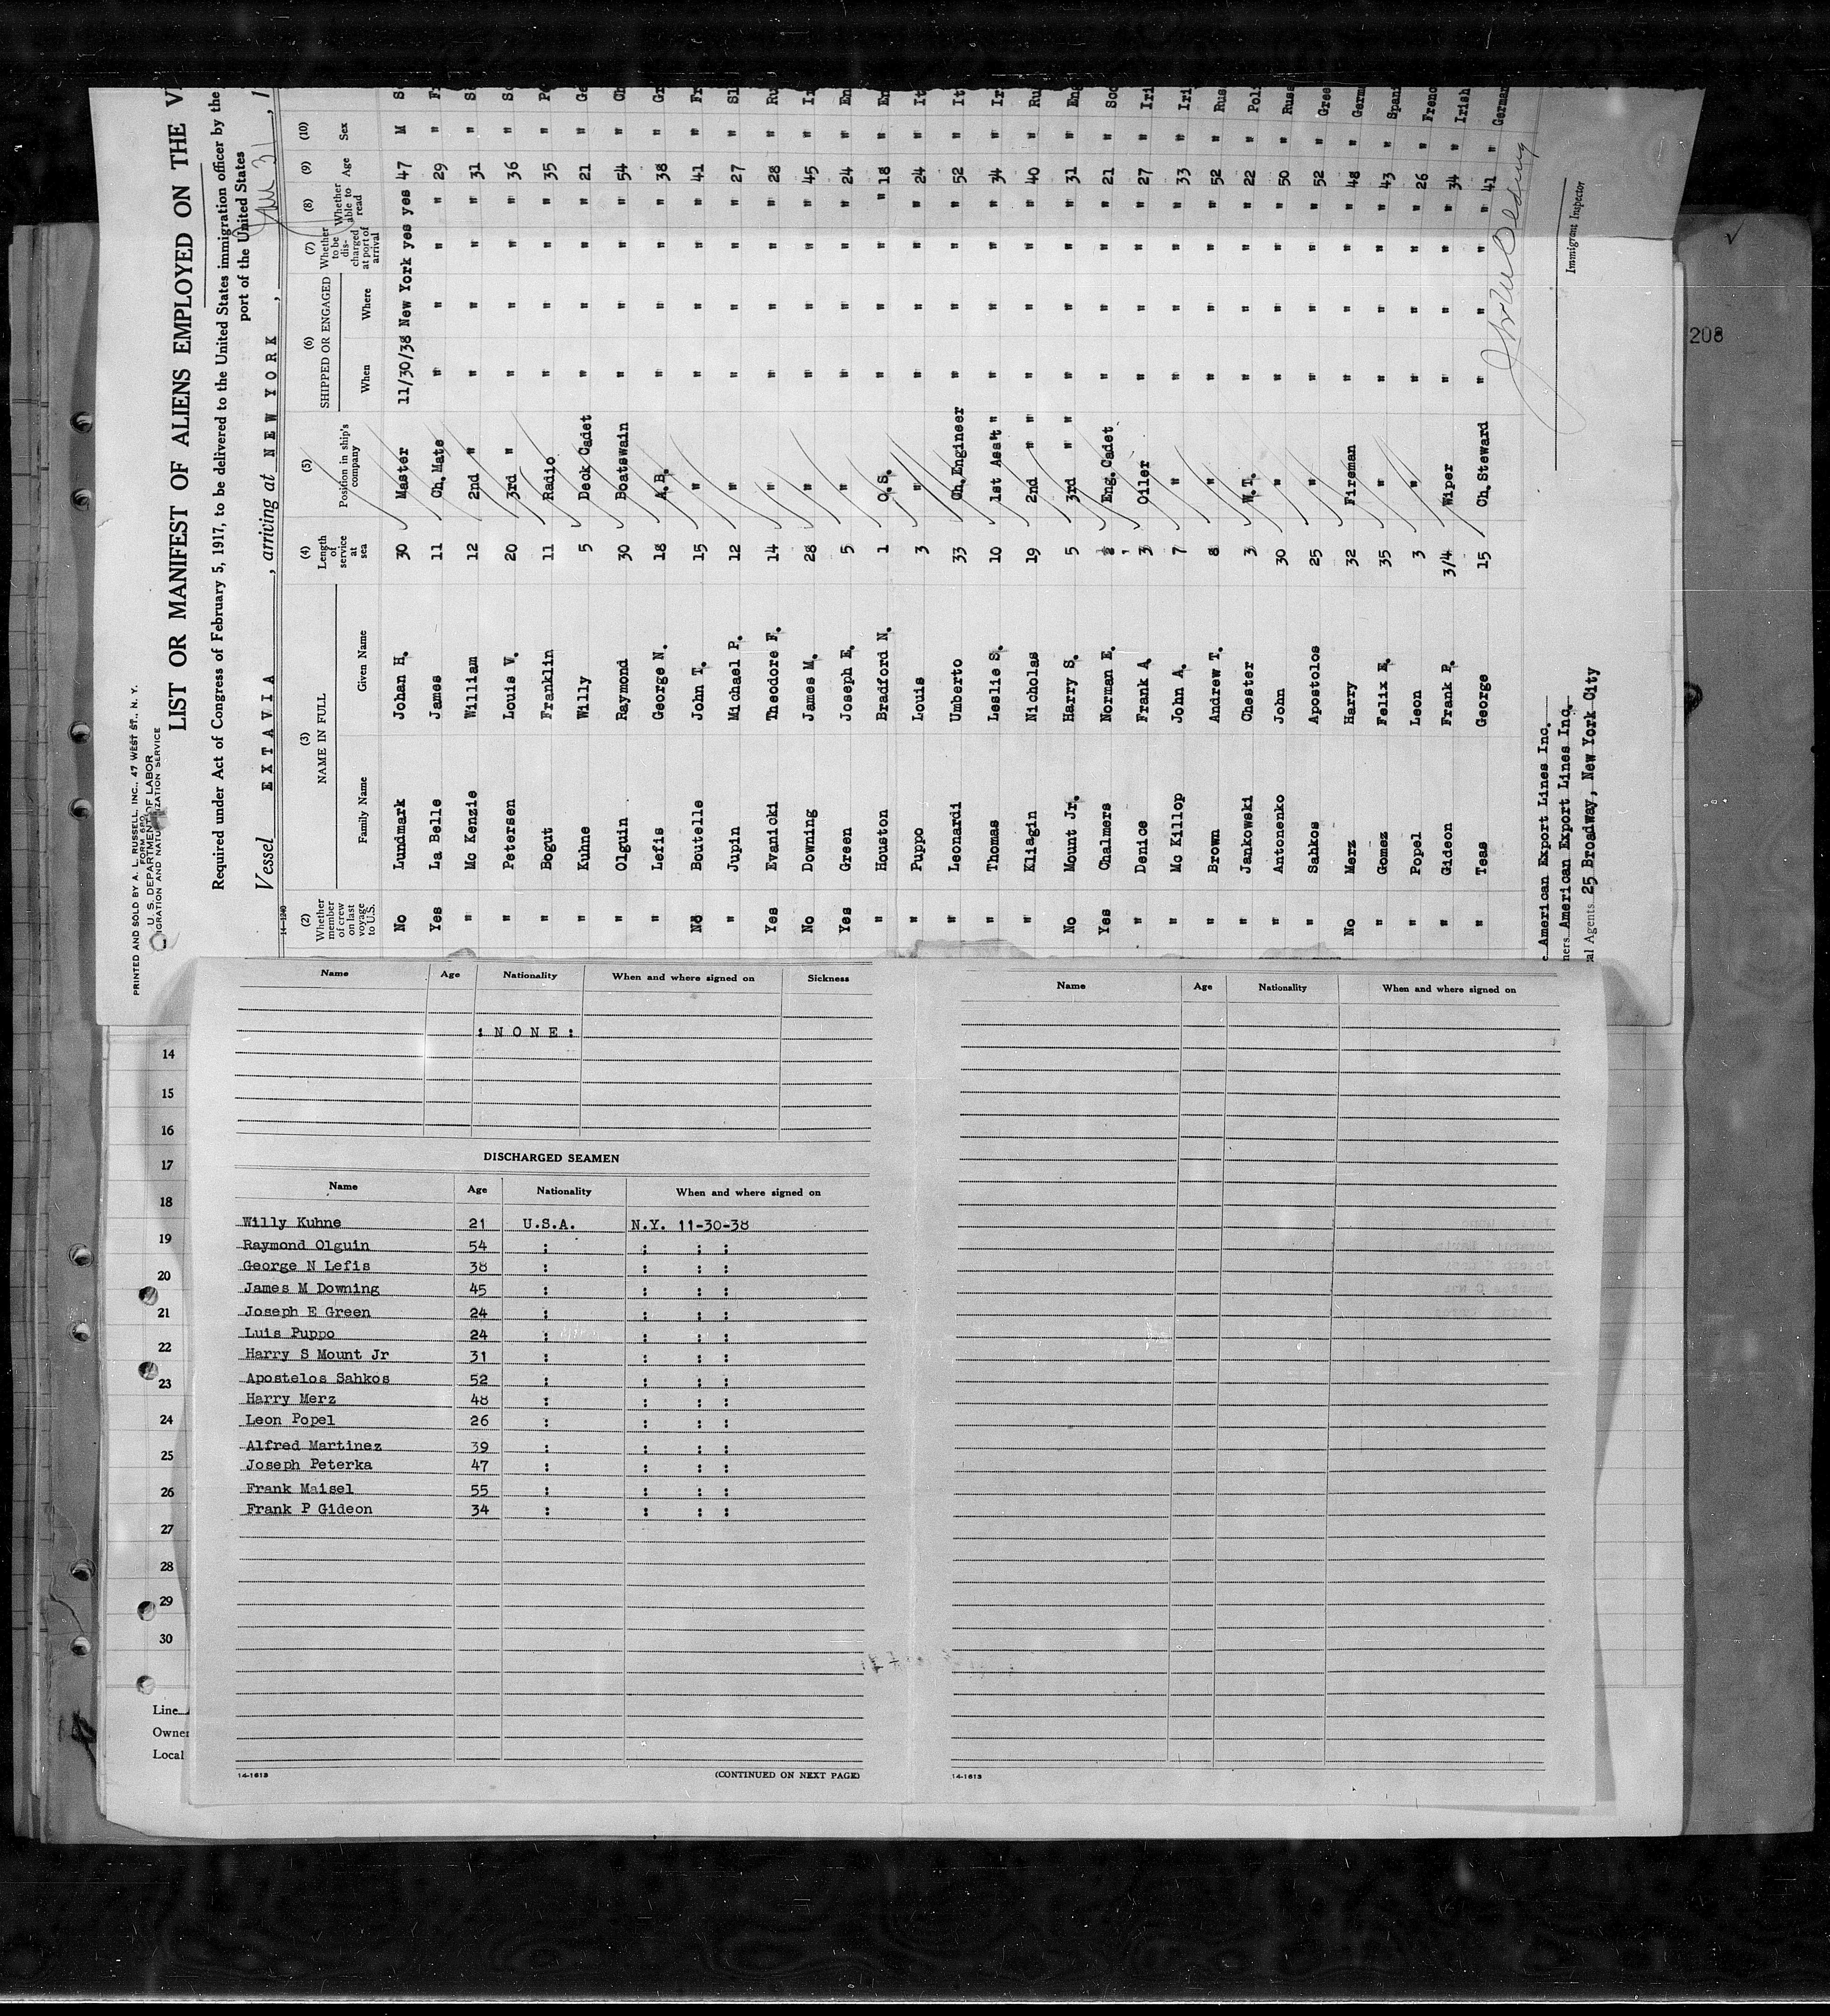 PRINTED AND SOLD BY A. L. RUSSELL, INC., 47 WEST ST., N. Y.
FORM 680
U. S. DEPARTMENT OF LABOR
IGRATION AND NATURALIZATION SERVICE
LIST OR MANIFEST OF ALIENS EMPLOYED ON THE
Required under Act of Congress of February 5, 1917, to be delivered to the United States immigration officer by the
port of the United States
Vessel EXTAVIA , arriving at NEW YORK , Jan 31 , 1
14-1240
(2) Whether member of crew on last voyage to U.S. (3) NAME IN FULL Family Name Given Name (4) Length of service at sea (5) Position in ship's company (6) SHIPPED OR ENGAGED When Where (7) Whether to be discharged at port of arrival (8) Whether able to read (9) Age (10) Sex
No Lundmark Johan H. 30 Master 11/30/38 New York yes yes 47 M Sc
Yes La Belle James 11 Ch. Mate " " " " 29 " Fr
" Mc Kenzie William 12 2nd " " " " " 31 " S
" Petersen Louis V. 20 3rd " " " " " 36 " Sc
" Bogut Franklin 11 Radio " " " " 35 " Po
" Kuhne Willy 5 Deck Cadet " " " " 21 " Ge
" Olguin Raymond 30 Boatswain " " " " 54 " Ch
" Lefis George N. 18 A.B. " " " " 38 " Gr
No Boutelle John T. 15 " " " " " 41 " Fr
" Jupin Michael P. 12 " " " " " 27 " Sl
Yes Evanicki Theodore F. 14 " " " " " 28 " Ru
No Downing James M. 28 " " " " " 45 " Ir
Yes Green Joseph E. 5 " " " " " 24 " En
" Houston Bradford N. 1 O.S. " " " " 18 " En
" Puppo Louis 3 " " " " " 24 " It
" Leonardi Umberto 33 Ch. Engineer " " " " 52 " It
" Thomas Leslie S. 10 1st Ass't " " " " " 34 " Ir
" Kliagin Nicholas 19 2nd " " " " " " 40 " Ru
No Mount Jr. Harry S. 5 3rd " " " " " " 31 " Eng
Yes Chalmers Norman E. Eng. Cadet " " " " 21 " Sco
" Denice Frank A. 3 Oiler " " " " 27 " Iri
" Mc Killop John A. 7 " " " " " 33 " Iri
" Brown Andrew T. 8 " " " " " 52 " Rus
" Jankowski Chester 3 W.T. " " " " 22 " Poli
" Antonenko John 30 " " " " " 50 " Russ
" Sahkos Apostolos 25 " " " " " 52 " Gree
No Merz Harry 32 Fireman " " " " 48 " Germ
" Gomez Felix E. 35 " " " " " 43 " Spani
" Popel Leon 3 " " " " " 26 " Frenc
" Gideon Frank P. 3/4 Wiper " " " " 34 " Irish
" Teas George 15 Ch. Steward " " " " 41 " German
American Export Lines Inc.
ners American Export Lines Inc.
al Agents 25 Broadway, New York City
Immigrant Inspector
208
Name Age Nationality When and where signed on Sickness
: N O N E :
DISCHARGED SEAMEN
Name Age Nationality When and where signed on
Willy Kuhne 21 U.S.A. N.Y. 11-30-38
Raymond Olguin 54 : : : :
George N Lefis 38 : : : :
James M Downing 45 : : : :
Joseph E Green 24 : : : :
Luis Puppo 24 : : : :
Harry S Mount Jr 31 : : : :
Apostelos Sahkos 52 : : : :
Harry Merz 48 : : : :
Leon Popel 26 : : : :
Alfred Martinez 39 : : : :
Joseph Peterka 47 : : : :
Frank Maisel 55 : : : :
Frank P Gideon 34 : : : :
14-1613
(CONTINUED ON NEXT PAGE)
Name Age Nationality When and where signed on
14-1613
14
15
16
17
18
19
20
21
22
23
24
25
26
27
28
29
30
Line
Owner
Local